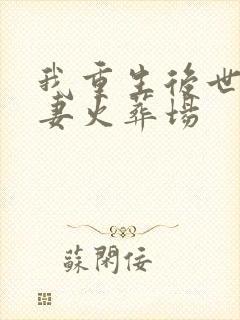 我重生後世
妻火葬場
蘇閑佞